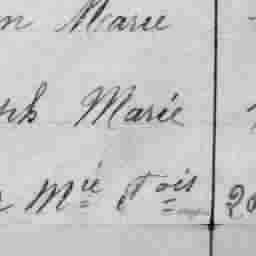 n Marie
ph Marie
r Mie Fois 20